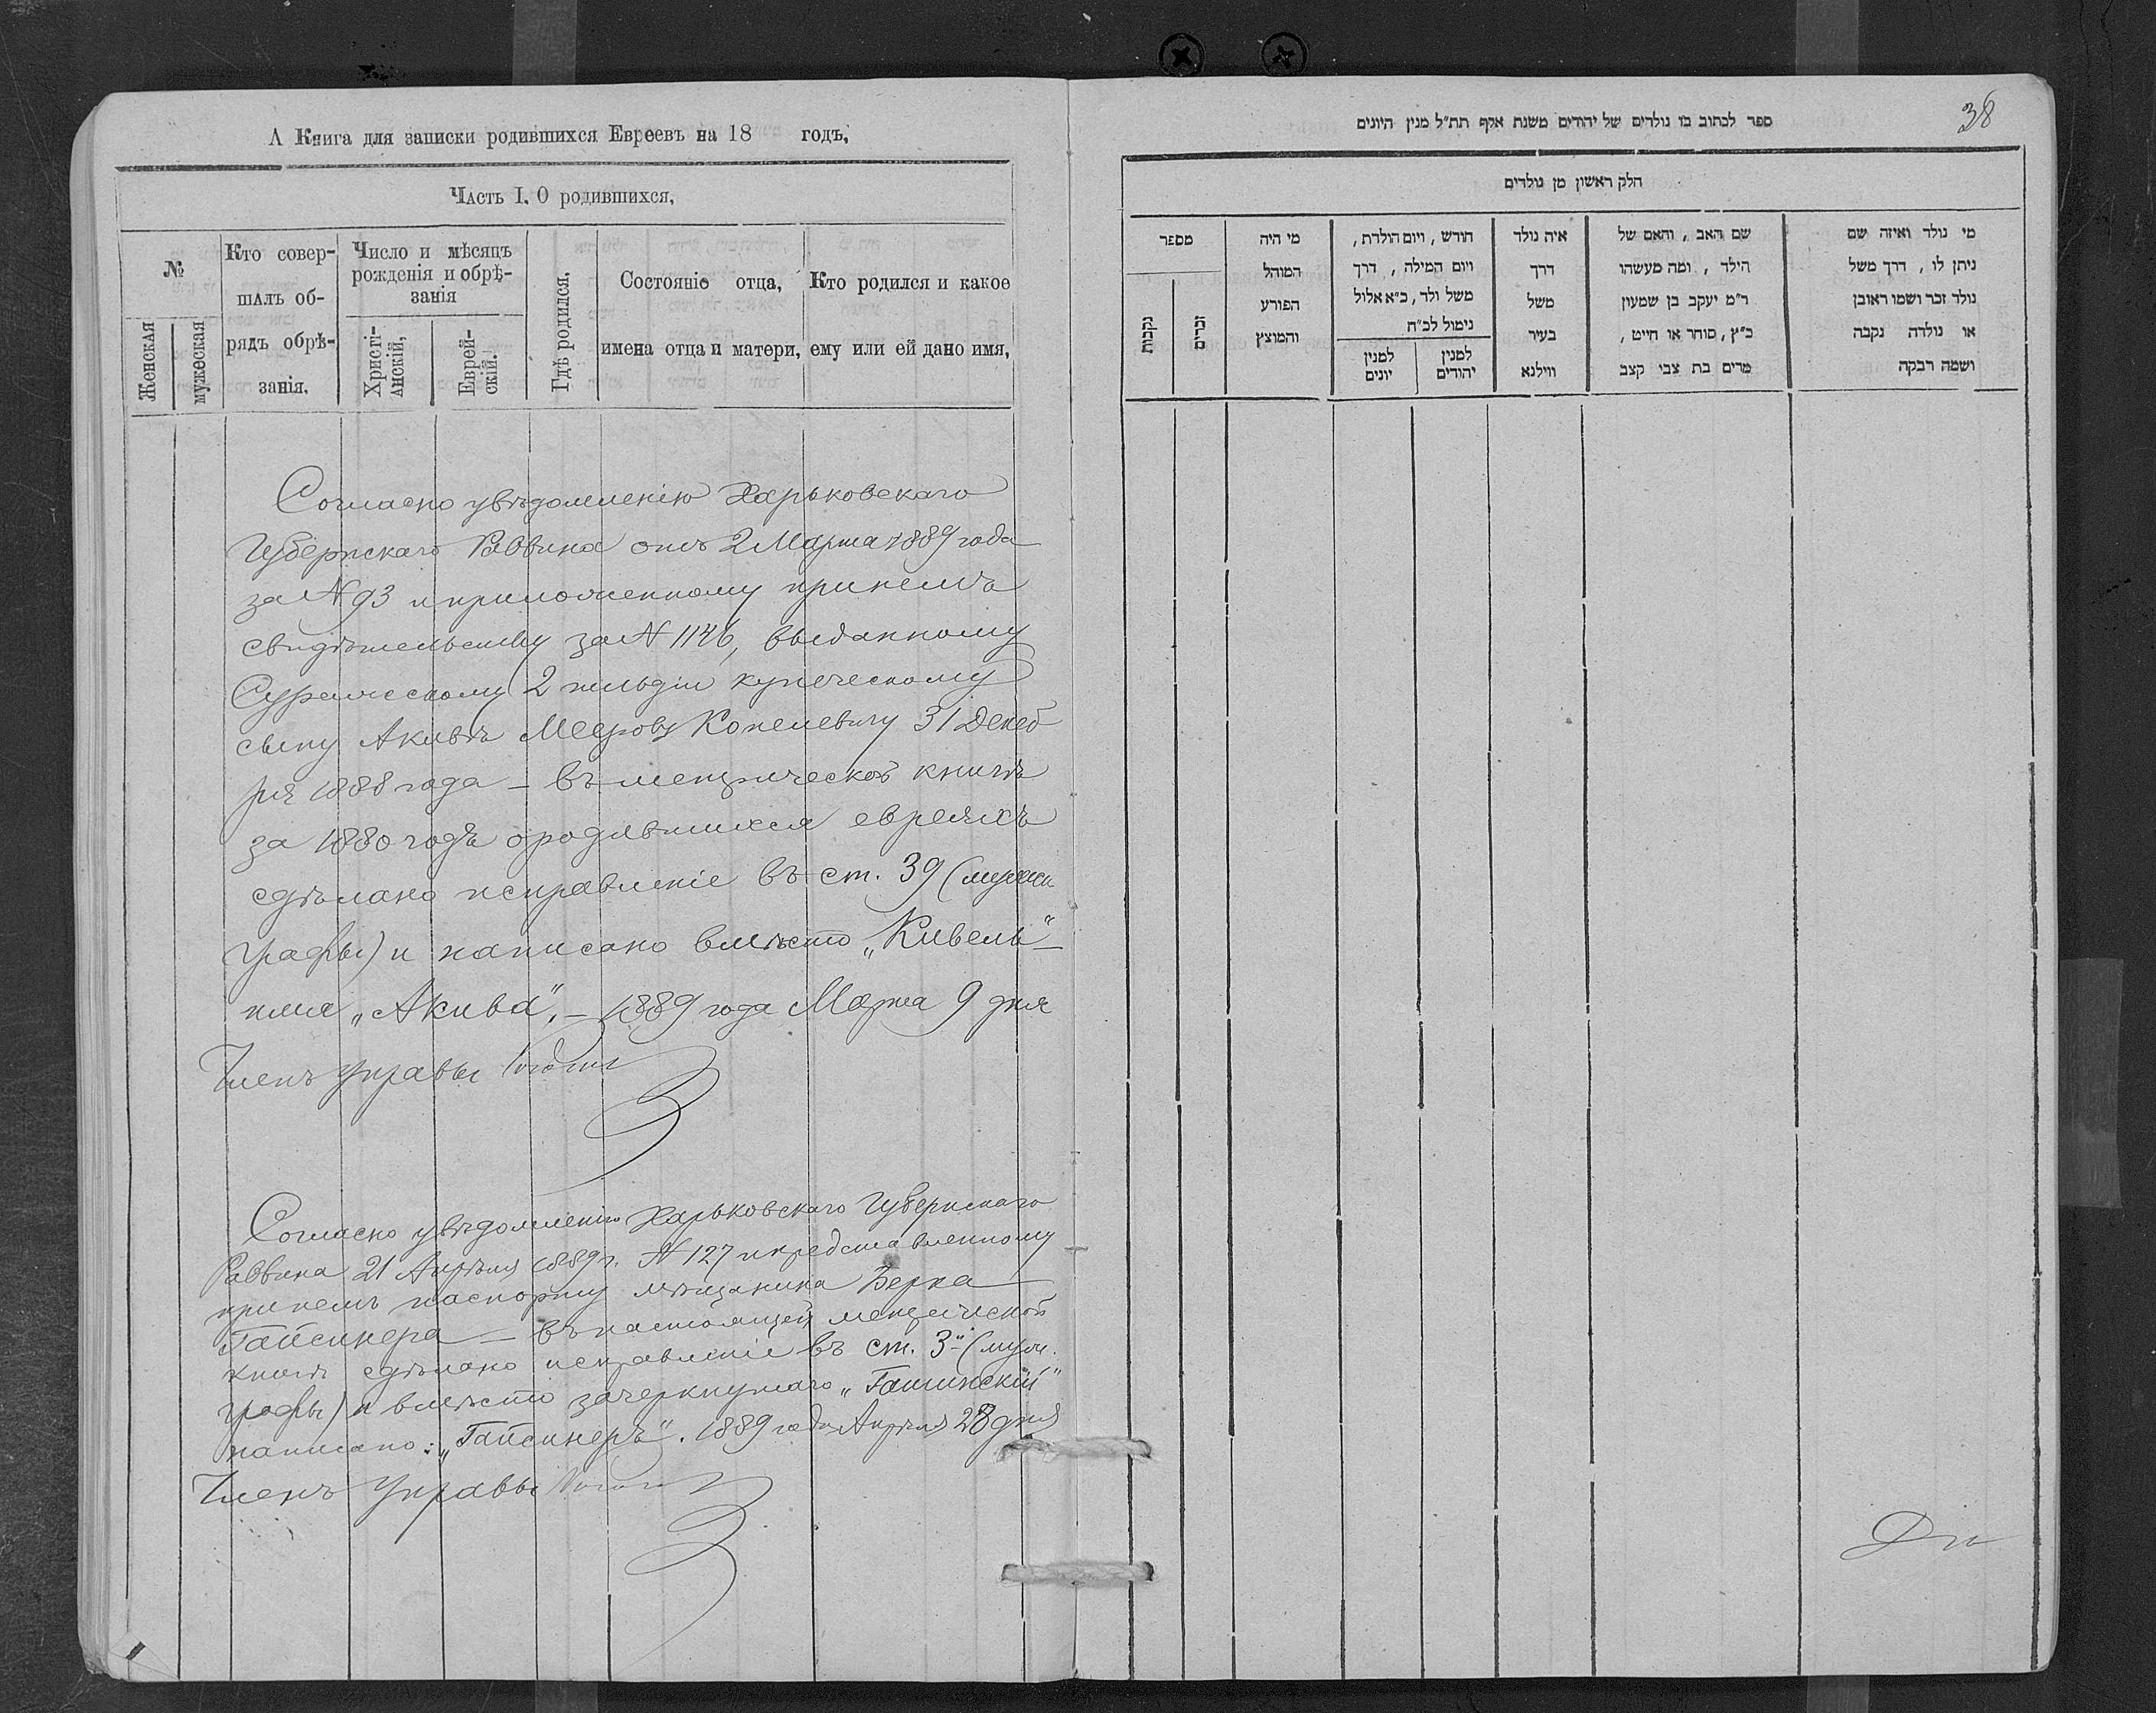 А Книга для записки родившихся Евреевъ на 18 годъ,
Часть I. О родившихся,
№
Женская
мужеская
Кто совер-
шалъ об-
рядъ обрѣ-
занія.
Число и мѣсяцъ
рожденія и обрѣ-
занія
Христі-
анскій,
Еврей-
скій.
Гдѣ родился.
Состояніе отца,
имена отца и матери,
Кто родился и какое
ему или ей дано имя,
Согласно увѣдомленію Харьковскаго
Губернскаго Раввина отъ 2 Марта 1889 года
за № 93 и приложенному при немъ
свидѣтельству за № 1146, выданному
2 гильдіи купеческому
сыну Акивѣ Меерову Копелевичу 31 Декаб
ря 1888 года – въ метрической книгѣ
за 1880 годъ о родившихся евреяхъ
сдѣлано исправленіе въ ст. 39 (мужск
графы) и написано вмѣсто „Кивель“ –
имя „Акива“. – 1889 года Марта 9 дня
Членъ Управы
Согласно увѣдомленію Харьковскаго Губернскаго
Раввина 21 Апрѣля 1889 г. № 127 и представленному
при немъ паспорту мѣщанина Берка
Гайсинера – въ настоящей метрической
книгѣ сдѣлано исправленіе въ ст. 3й (муж.
графы) и вмѣсто зачеркнутаго „Гашинскій“
написано: „Гайсинеръ“. 1889 года Апрѣля 28 дня
Членъ Управы
38
ספר לכתוב בו נולדים של יהודים משנת אלף תת״ל מנין היונים
חלק ראשון מן נולדים
מספר
נקבות
זכרים
מי היה
המוהל
הפורע
והמוצץ
חודש, ויום הולדת,
ויום המילה, דרך
משל ולד, כ״א אלול
נימול לכ״ח
למנין
יונים
למנין
יהודים
איה נולד
דרך
משל
בעיר
ווילנא
שם האב, והאם של
הילד, ומה מעשהו
ר״מ יעקב בן שמעון
כ״ץ, סוחר או חייט,
מרים בת צבי קצב
מי נולד ואיזה שם
ניתן לו, דרך משל
נולד זכר ושמו ראובן
או נולדה נקבה
ושמה רבקה